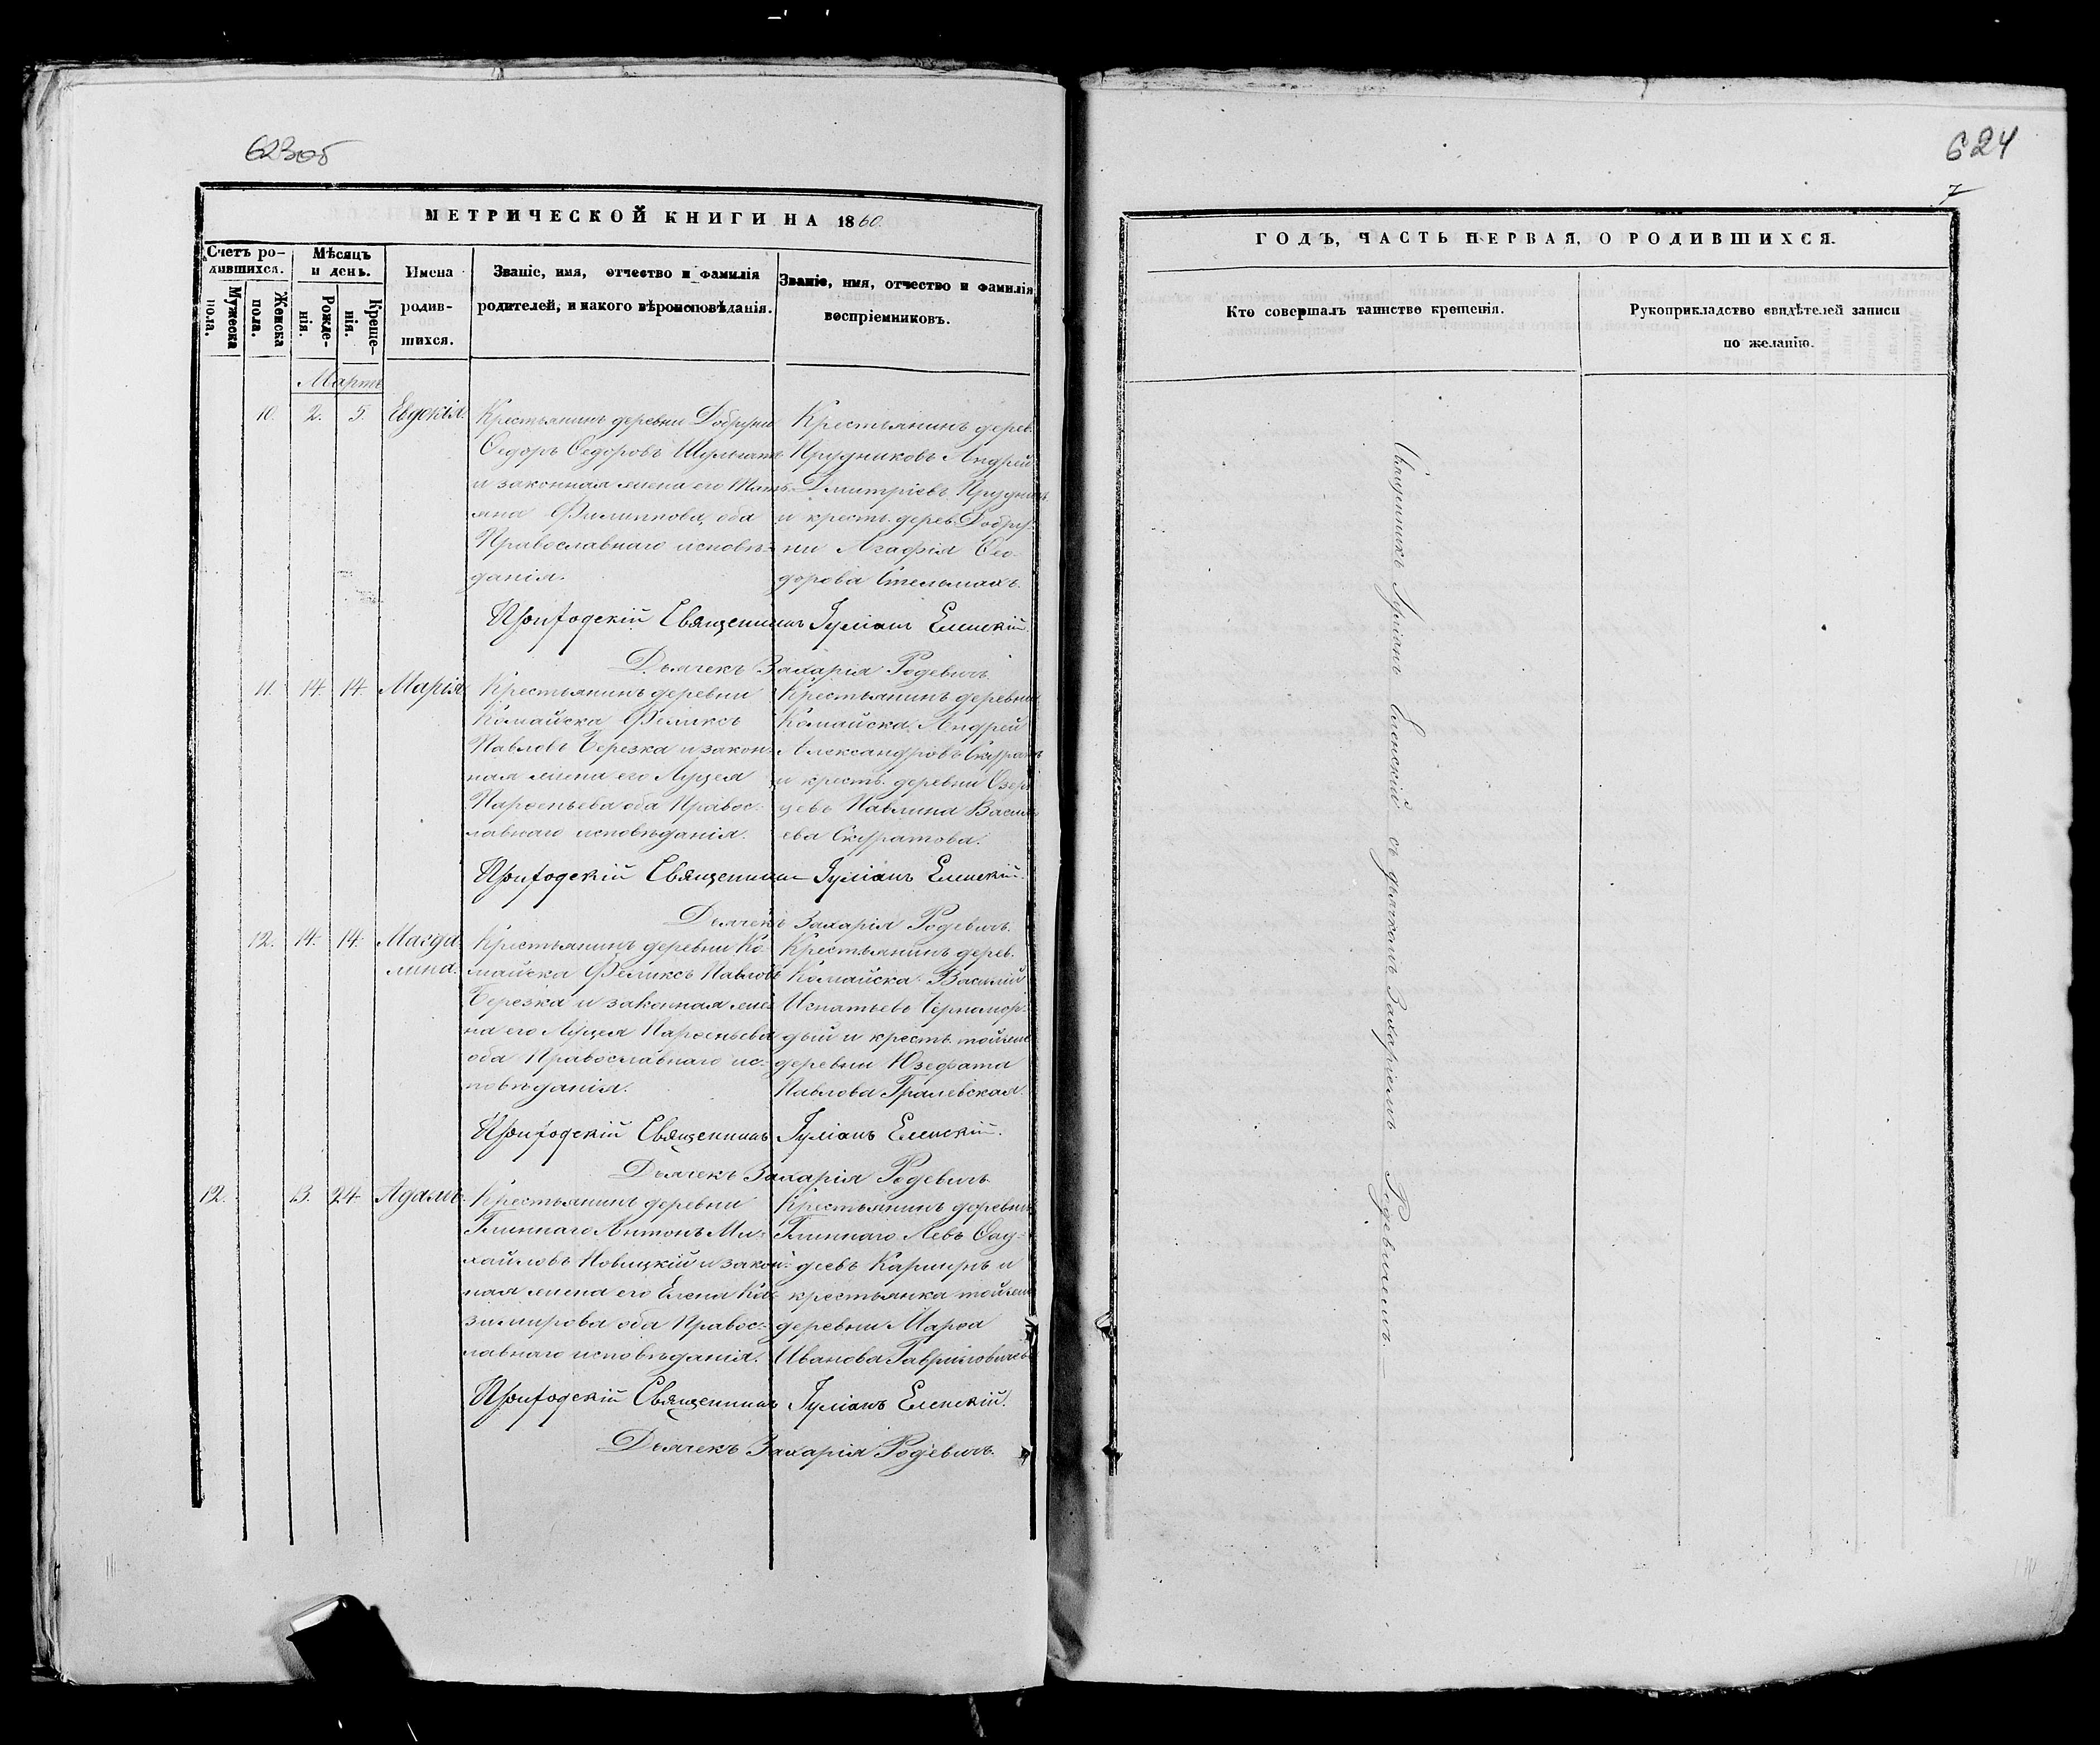 623об
МЕТРИЧЕСКОЙ КНИГИ НА 1860
Счетъ ро-
дившихся.
Мужеска
пола.
Женска
пола.
Мѣсяцъ
и день.
Рожде-
нія.
Креще-
нія.
Имена
родив-
шихся.
Званіе, имя, отчество и фамилія
родителей, и какого вѣроисповѣданія.
Званіе, имя, отчество и фамилія
воспріемниковъ.
Мартъ
10. 2. 5. Евдокія.
Крестьянинъ деревни Добруни
Ѳедоръ Ѳедоровъ
и законная жена его Тать-
яна Филиппова, оба
Православнаго исповѣ-
данія.
Крестьянинъ дерев.
Прудниковъ Андрей
Дмитріевъ
и крестъ. дерев. Добру-
ни Агафія Ѳео-
дорова Стельмахъ.
Приходскій Священникъ Іуліанъ Еленскій.
Дьячекъ Захарія Родевичъ.
11. 14. 14. Марія
Крестьянинъ деревни
Комайска Феликсъ
Павловъ Березка и закон-
ная жена его Луцея
Парѳеньева оба Правос-
лавнаго исповѣданія.
Крестьянинъ деревни
Комайска Андрей
Александровъ
и крестъ. деревни Озер-
цевъ Павлина Василь-
ева Скуратова.
Приходскій Священникъ Іуліанъ Еленскій.
Дьячекъ Захарія Родевичъ.
12. 14. 14. Магда
лина.
Крестьянинъ деревни Ко-
майска Феликсъ Павловъ
Березка и законная же-
на его Луцея Парѳеньева
оба Православнаго ис-
повѣданія.
Крестьянинъ дерев.
Комайска Василій
Игнатьевъ Черномор-
дый и крестъ. тойже
деревни Юзефата
Павлова Гралевская.
Приходскій Священникъ Іуліанъ Еленскій.
Дьячекъ Захарія Родевичъ.
12. 13. 24. Адамъ.
Крестьянинъ деревни
Глиннаго Антонъ Ми-
хайловъ Новицкій и закон-
ная жена его Елена Ка-
зимирова оба Правос-
лавнаго исповѣданія.
Крестьянинъ деревни
Глиннаго Левъ Ѳад-
деевъ и
крестьянка тойже
деревни Марѳа
Иванова
Приходскій Священникъ Іуліанъ Еленскій.
Дьячекъ Захарія Родевичъ.
624
7
ГОДЪ, ЧАСТЬ ПЕРВАЯ, О РОДИВШИХСЯ.
Кто совершалъ таинство крещенія.
Рукоприкладство свидѣтелей записи
по желанію.
Священникъ Іуліанъ Еленскій съ дьячкомъ Захаріемъ Родевичемъ.